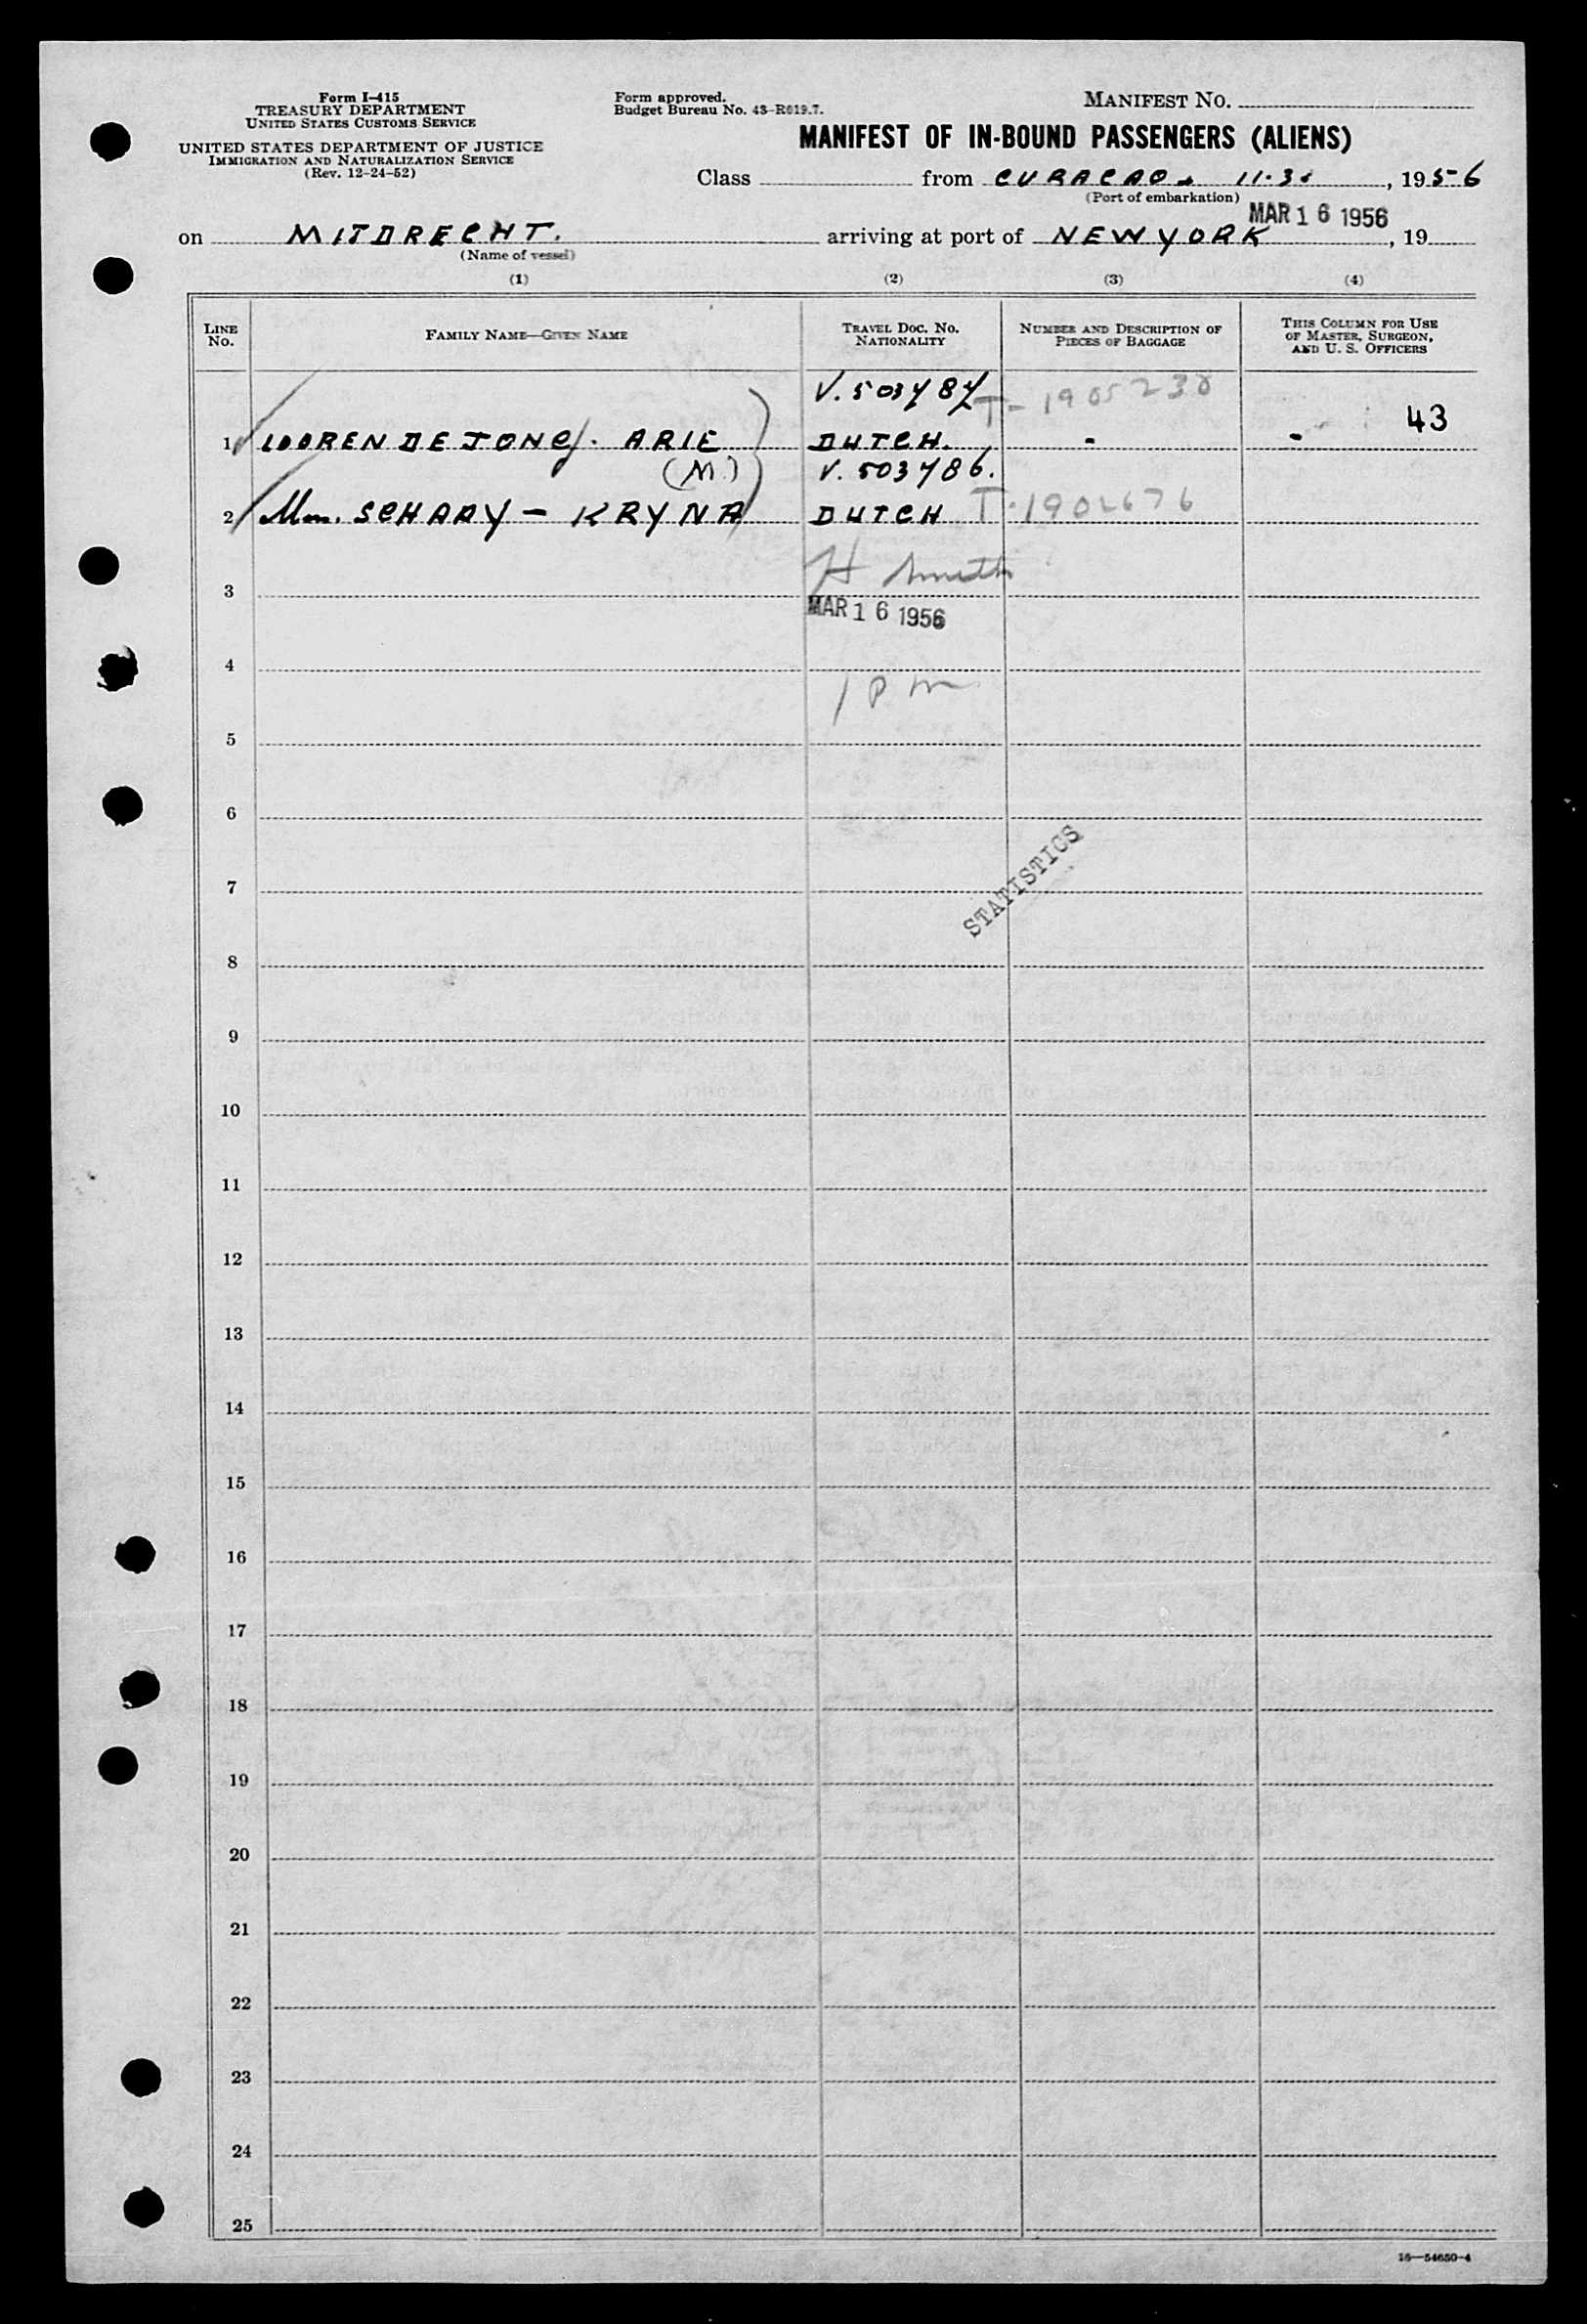 Form I-415
TREASURY DEPARTMENT
UNITED STATES CUSTOMS SERVICE
UNITED STATES DEPARTMENT OF JUSTICE
IMMIGRATION AND NATURALIZATION SERVICE
(Rev. 12-24-52)
Form approved.
Budget Bureau No. 43-R019.7.
MANIFEST NO.
MANIFEST OF IN-BOUND PASSENGERS (ALIENS)
Class from CURACAO 11.3. , 195-6
(Port of embarkation)
MAR 16 1956
on MIJDRECHT. arriving at port of NEW YORK , 19
(Name of vessel)
(1) (2) (3) (4)
LINE No. FAMILY NAME—GIVEN NAME TRAVEL DOC. NO. NATIONALITY NUMBER AND DESCRIPTION OF PIECES OF BAGGAGE THIS COLUMN FOR USE OF MASTER, SURGEON, AND U. S. OFFICERS
V. 503787 T-1905230
43
1 LOOREN DE JONG. ARIE DUTCH. - -
(M.) V. 503786.
2 SCHAAY - KRYNA DUTCH T-1902676
H Smith
3
MAR 16 1956
4
1 P m
5
6
STATISTICS
7
8
9
10
11
12
13
14
15
16
17
18
19
20
21
22
23
24
25
16—54650-4